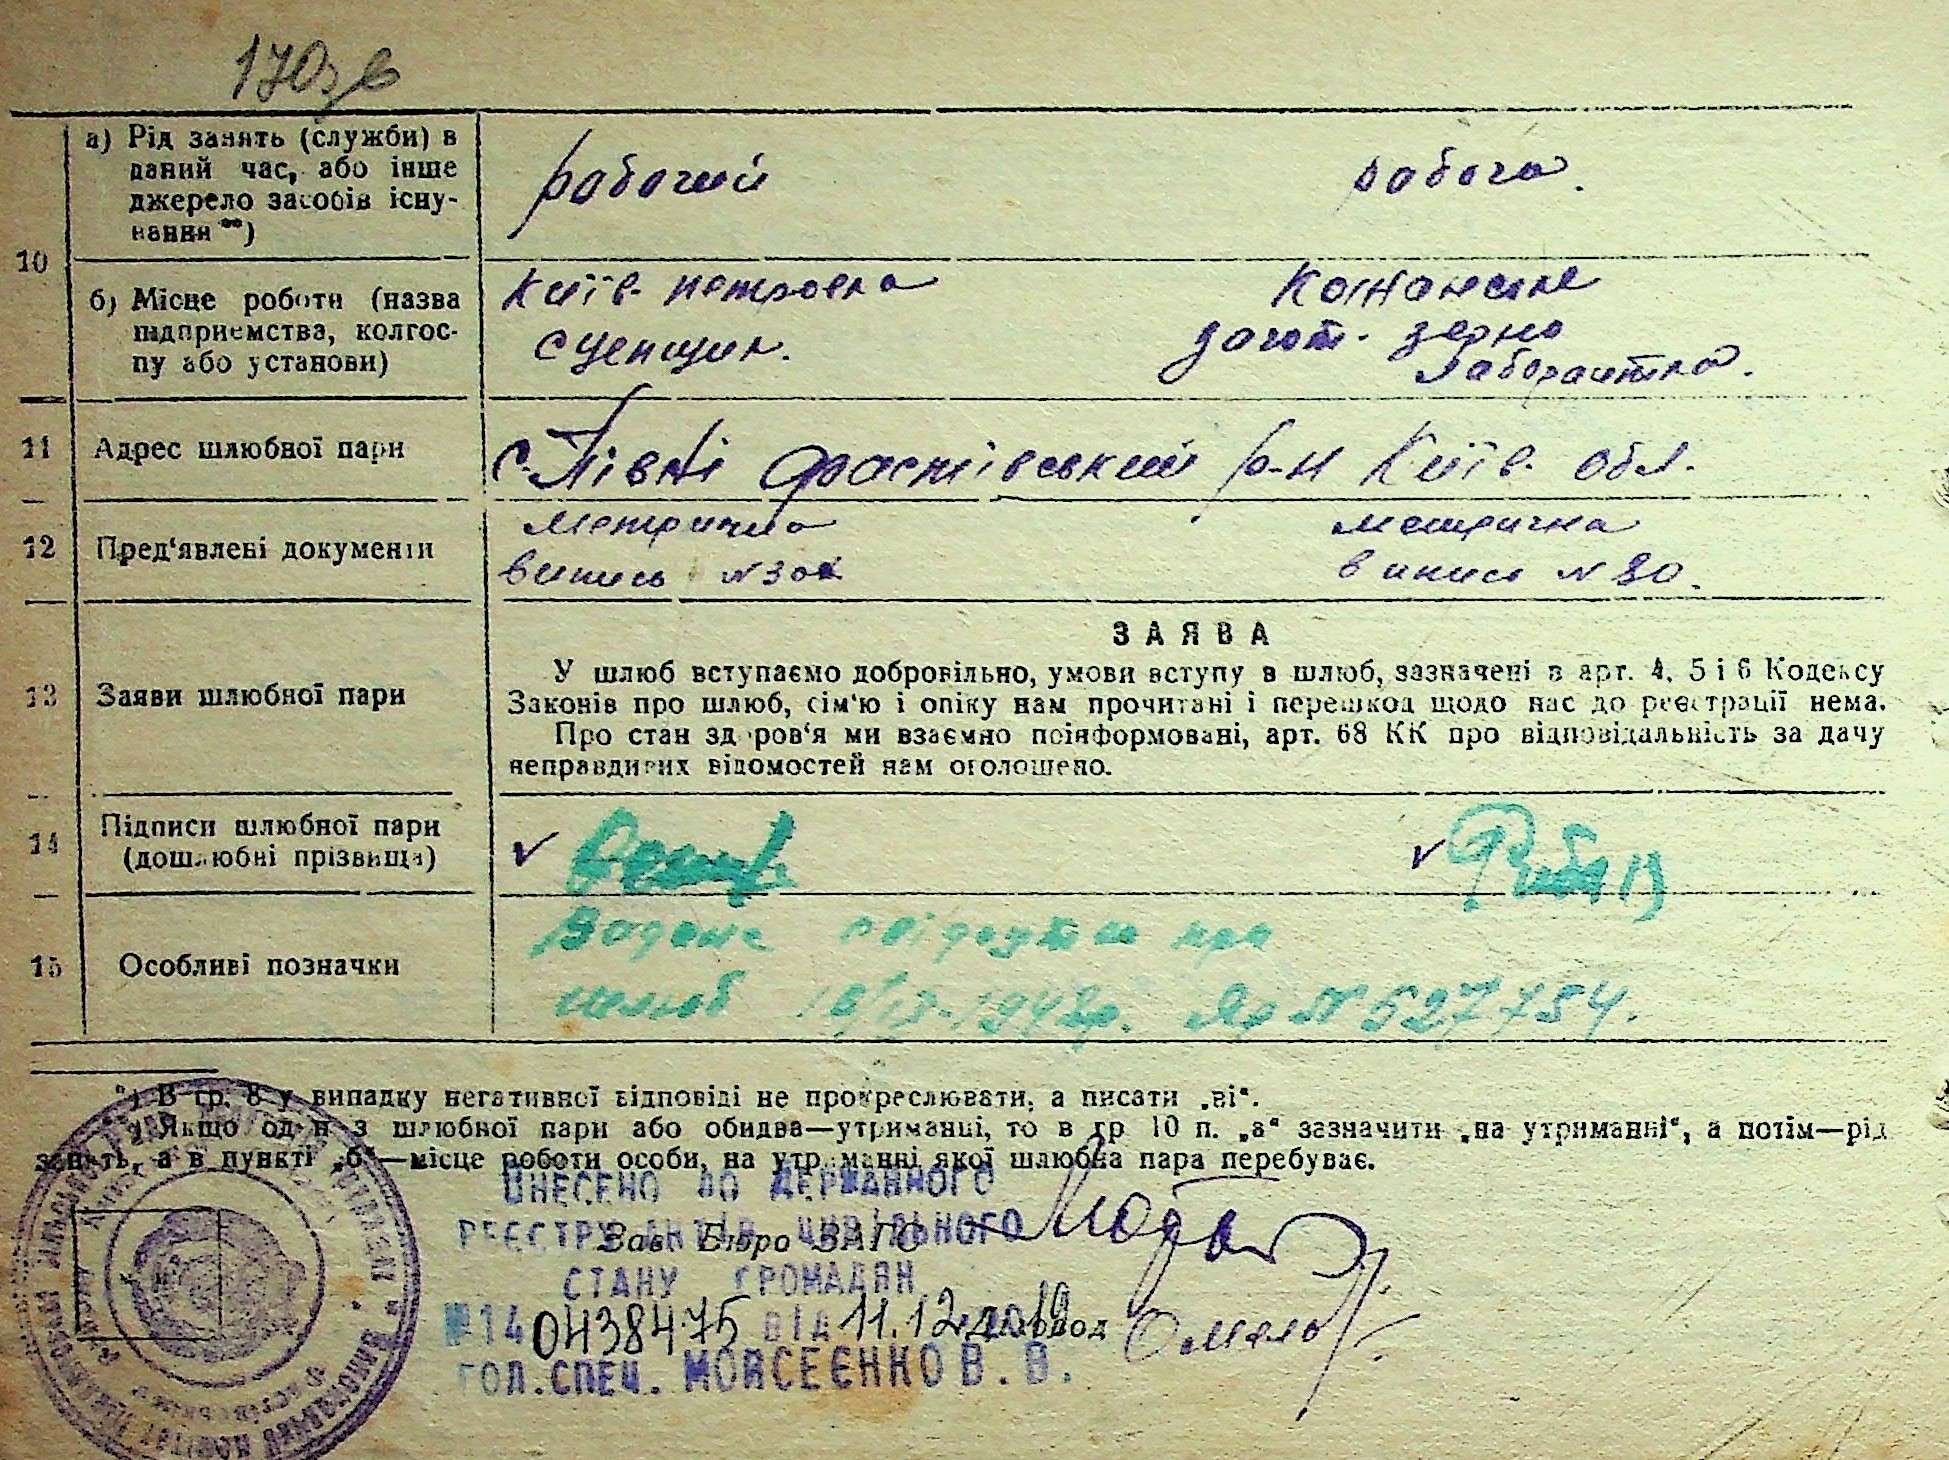 170зв
10
а) Рід занять (служби) в
даний час, або інше
джерело засобів існу-
вання **)
рабочий
рабоча.
б) Місце роботи (назва
підприємства, колгос-
пу або установи)
Київ-петровка
сценщик.
загот-зерно
лаборантка.
11
Адрес шлюбної пари
с. Півні Фастівський р-н Київ. обл.
12
Пред‘явлені документи
метрична
випись №
метрична
випись № 80.
13
Заяви шлюбної пари
ЗАЯВА
У шлюб вступаємо добровільно, умови вступу в шлюб, зазначені в арт. 4, 5 і 6 Кодексу
Законів про шлюб, сім‘ю і опіку нам прочитані і перешкод щодо нас до реєстрації нема.
Про стан здоров‘я ми взаємно поінформовані, арт. 68 КК про відповідальність за дачу
неправдивих відомостей нам оголошено.
14
Підписи шлюбної пари
(дошлюбні прізвища)
15
Особливі позначки
Видано свідоцтво про
шлюб Яр № 527754.
*) В гр. 8 у випадку негативної відповіді не прокреслювати, а писати „ні“.
Якщо один з шлюбної пари або обидва—утриманці, то в гр 10 п. „а“ зазначити „на утриманні“, а потім—рід
занять, а в пункті „б“—місце роботи особи, на утриманні якої шлюбна пара перебуває.
ВНЕСЕНО ДО ДЕРЖАВНОГО
РЕЄСТРУ АКТІВ ЦИВІЛЬНОГО
Зав. Бюро ЗАГС
СТАНУ ГРОМАДЯН
№14 0438475 ВІД 11.12.2019
Діловод
ГОЛ.СПЕЦ. МОВСЕЄНКО В.В.